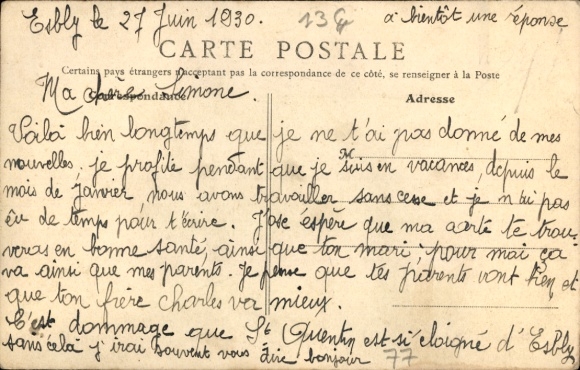 Esbly le 27 Juin 1930. 13G à bientôt une réponse
CARTE POSTALE
Certains pays étrangers n'acceptant pas la correspondance de ce côté, se renseigner à la Poste
Ma chère Simone.
Correspondance Adresse
Voilà bien longtemps que je ne t'ai pas donné de mes
nouvelles. je profite pendant que je suis en vacances, depuis le
M
mois de Janvier nous avons travailler sans cesse et je n'ai pas
eu de temps pour t'écrire. J'ose éspère que ma carte te trou-
veras en bonne santé, ainsi que ton mari; pour moi ça
va ainsi que mes parents. Je pense que tes parents vont bien et
que ton frère Charles va mieux.
C'est dommage que St Quentin est si éloigné d'Esbly,
sans celà j'irai souvent vous dire bonjour 77